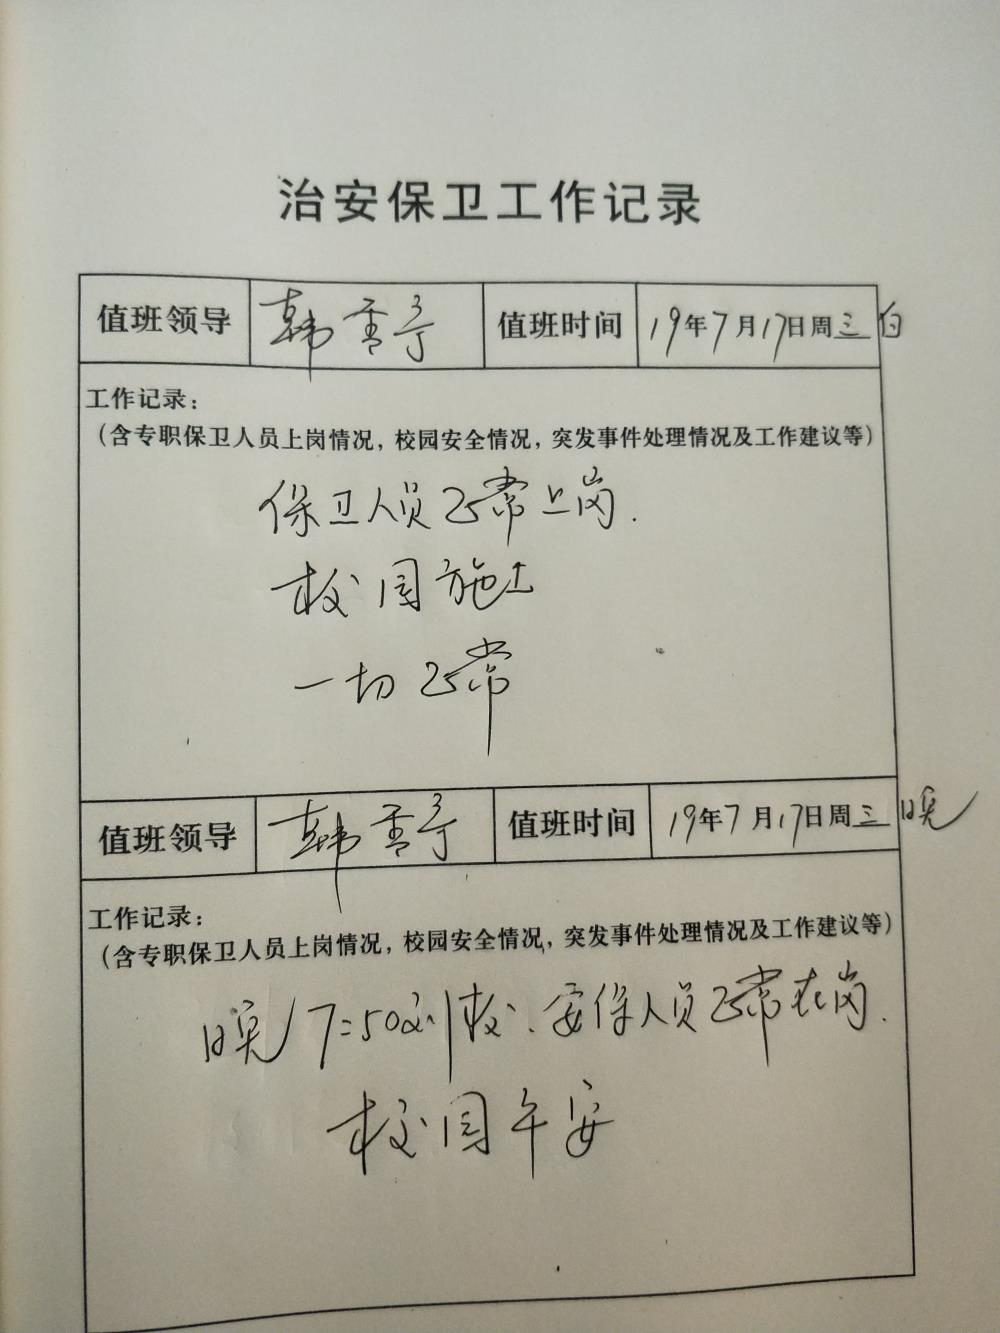 治安保卫工作记录
值班领导 韩香宁 值班时间 19年7月17日周三 白
工作记录：
（含专职保卫人员上岗情况，校园安全情况，突发事件处理情况及工作建议等）
保卫人员正常上岗.
校园施工
一切正常
值班领导 韩香宁 值班时间 19年7月17日周三 晚
工作记录：
（含专职保卫人员上岗情况，校园安全情况，突发事件处理情况及工作建议等）
晚7:50到校、安保人员正常在岗.
校园平安